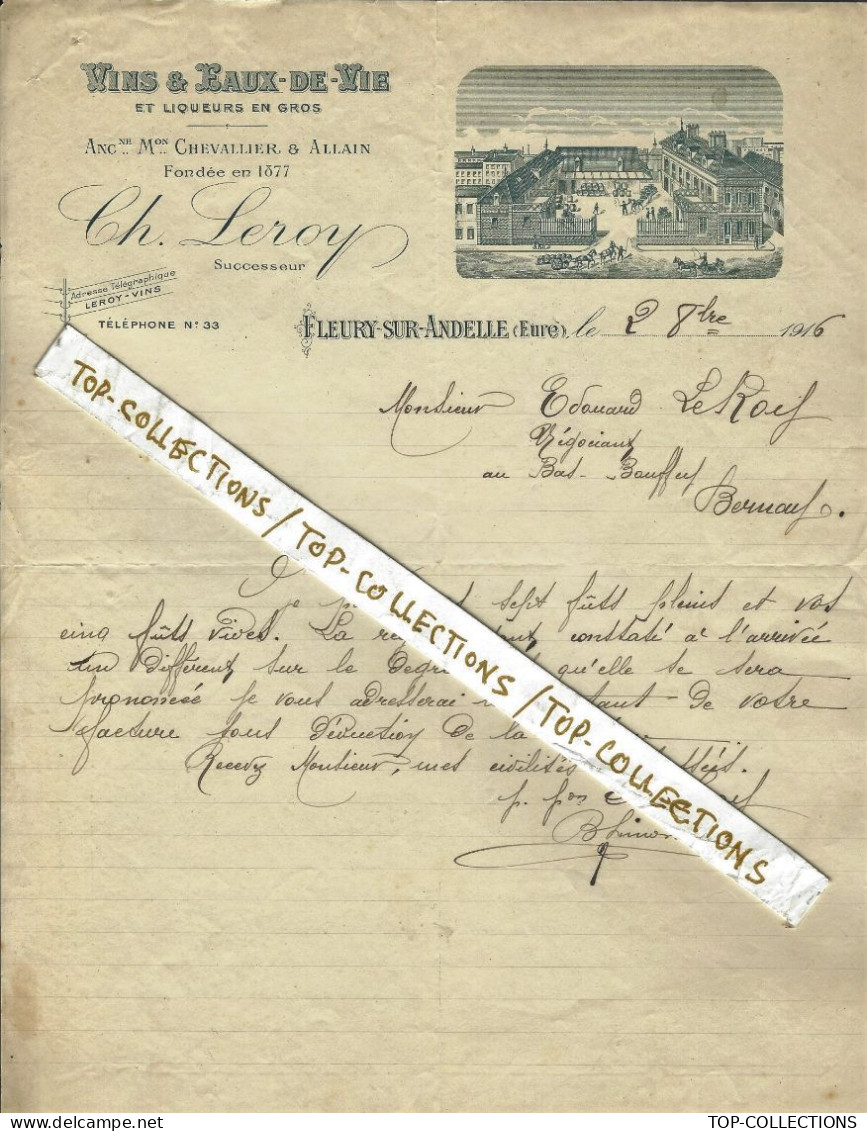 VINS & EAUX-DE-VIE
ET LIQUEURS EN GROS
ANC^NE M^ON CHEVALLIER & ALLAIN
Fondée en 1877
Ch. Leroy
Successeur
Adresse Télégraphique
LEROY-VINS
TÉLÉPHONE N° 33
FLEURY-SUR-ANDELLE (Eure), le 2 8bre 1916
Monsieur Edouard LeRoy
Négociant
au Bas-Bouffey
Bernay.
sept fûts pleins et vos
cinq fûts vides. La constaté à l'arrivée
un différent sur le degré qu'elle se sera
prononcée je vous adresserai de votre
facture sous déduction de la
Recevez Monsieur, mes civilités
p. pon
TOP-COLLECTIONS / TOP-COLLECTIONS / TOP-COLLECTIONS
TOP-COLLECTIONS